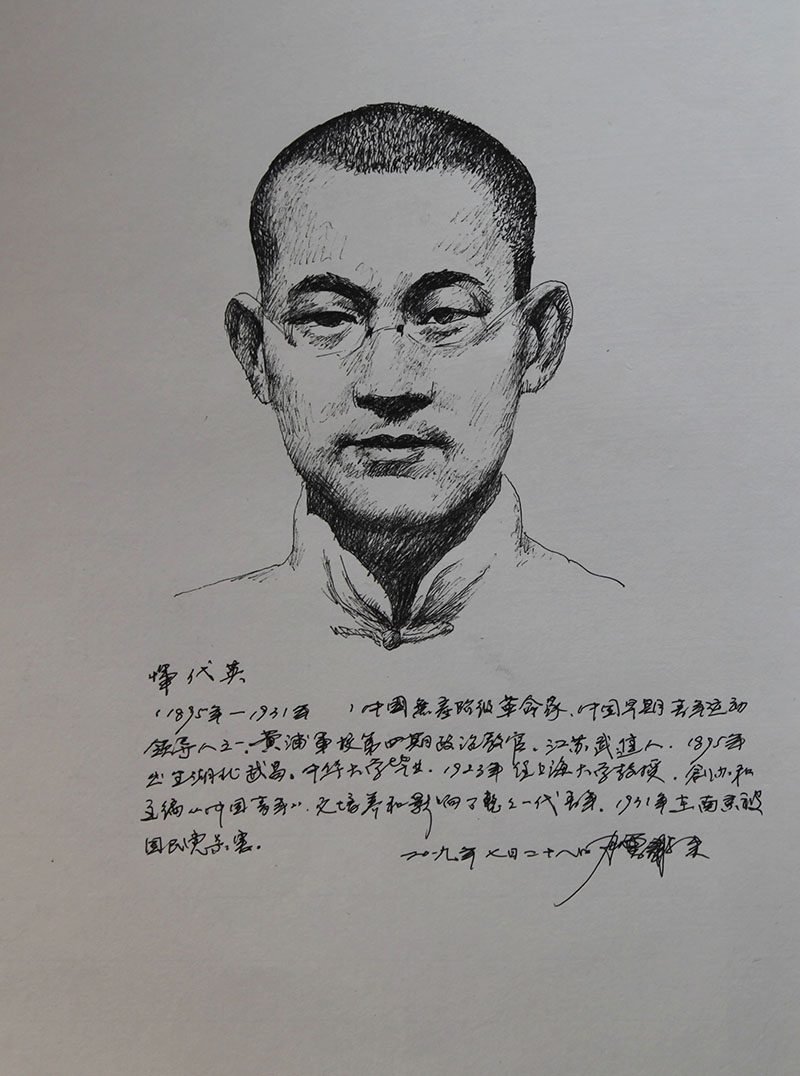 恽代英
(1895年—1931年 ) 中国无产阶级革命家、中国早期青年运动
领导人之一、黄浦军校第四期政治教官。江苏武进人. 1895年
出生湖北武昌。中华大学毕业. 1923年任上海大学教授. 创办和
主编《中国青年》. 它培养和影响了整整一代青年. 1931年在南京被
国民党杀害。
二〇一九年七月二十八日